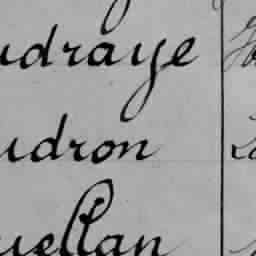 udraye
udron
uellan